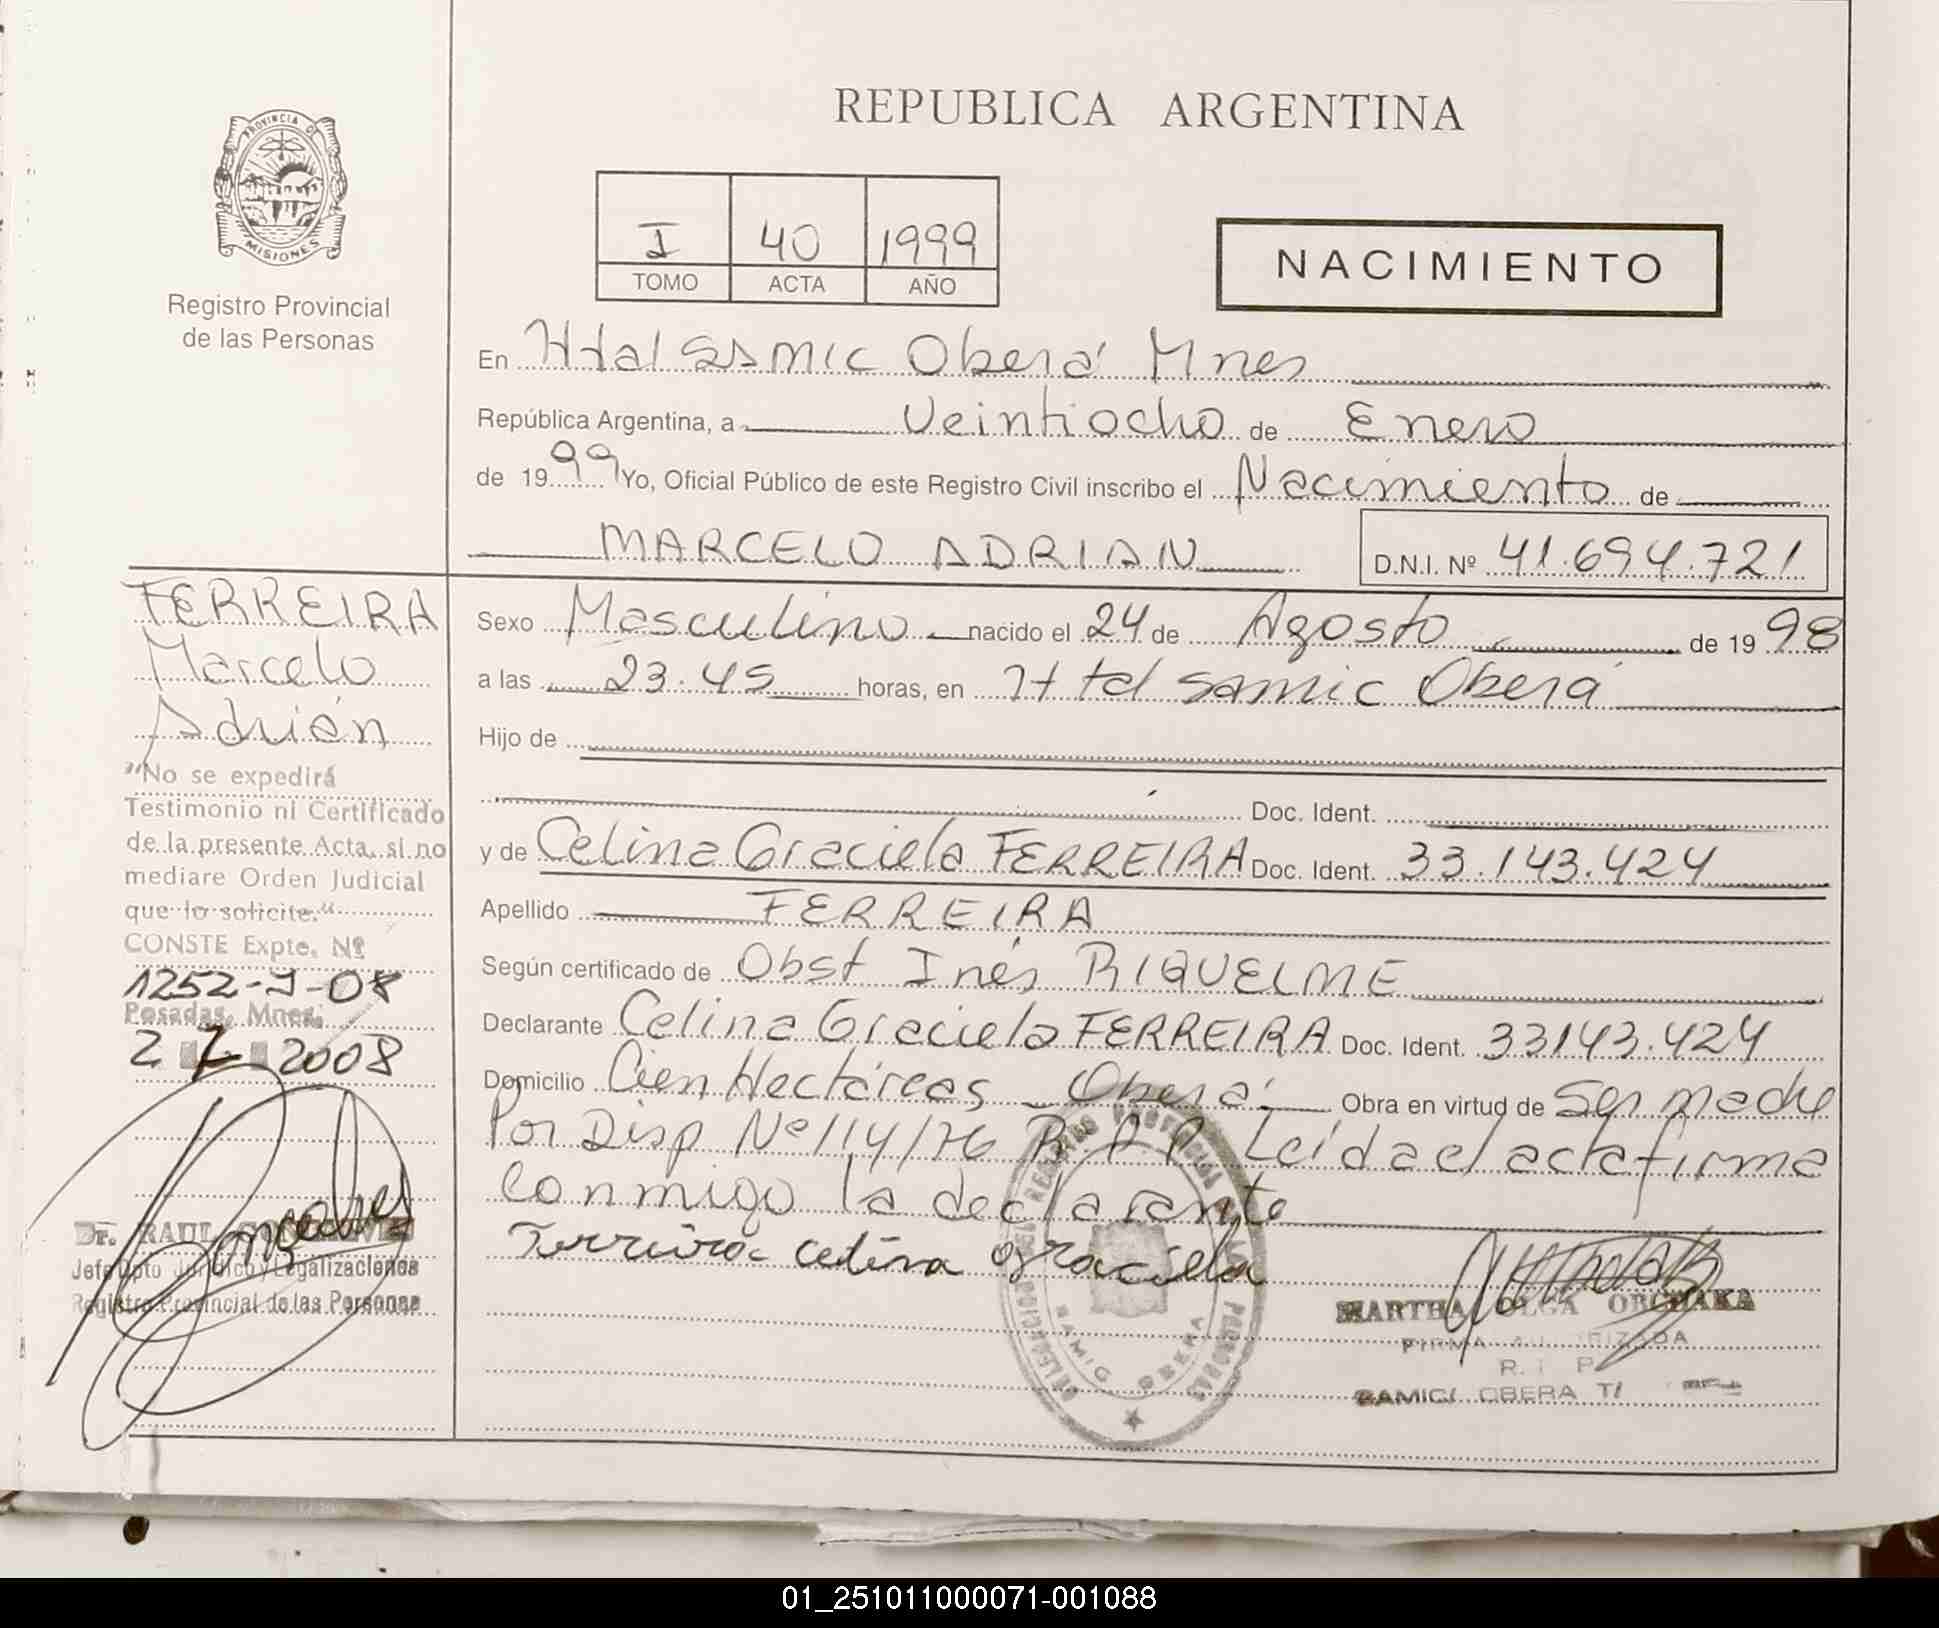 REPUBLICA ARGENTINA
PROVINCIA DE
MISIONES
Registro Provincial
de las Personas
I 40 1999
TOMO ACTA AÑO
NACIMIENTO
En Htal Samic Oberá Mnes
República Argentina, a Veintiocho de Enero
de 1999 Yo, Oficial Público de este Registro Civil inscribo el Nacimiento de
MARCELO ADRIAN D.N.I. Nº 41.694.721
FERREIRA
Marcelo
Adrián
"No se expedirá
Testimonio ni Certificado
de la presente Acta, si no
mediare Orden Judicial
que lo solicite."
CONSTE Expte. Nº
1252-J-08
Posadas, Mnes,
2 7 2008
Dr. RAUL
Jefe Dpto Jurídico y Legalizaciones
Registro Provincial de las Personas
Sexo Masculino nacido el 24 de Agosto de 1998
a las 23.45 horas, en Htal Samic Oberá
Hijo de
Doc. Ident.
y de Celina Graciela FERREIRA Doc. Ident. 33.143.424
Apellido FERREIRA
Según certificado de Obst Inés RIQUELME
Declarante Celina Graciela FERREIRA Doc. Ident. 33143.424
Domicilio Cien Hectáreas Oberá Obra en virtud de Ser madre
Por Disp Nº 114/76 R.P.P. Leída el acta firma
conmigo la declarante
Ferreira celina graciela
DELEGACION DEL REGISTRO PROVINCIAL DE LAS PERSONAS
SAMIC OBERA
MARTHA OLGA
FIRMA AUTORIZADA
R. P
SAMIC OBERA
01_251011000071-001088